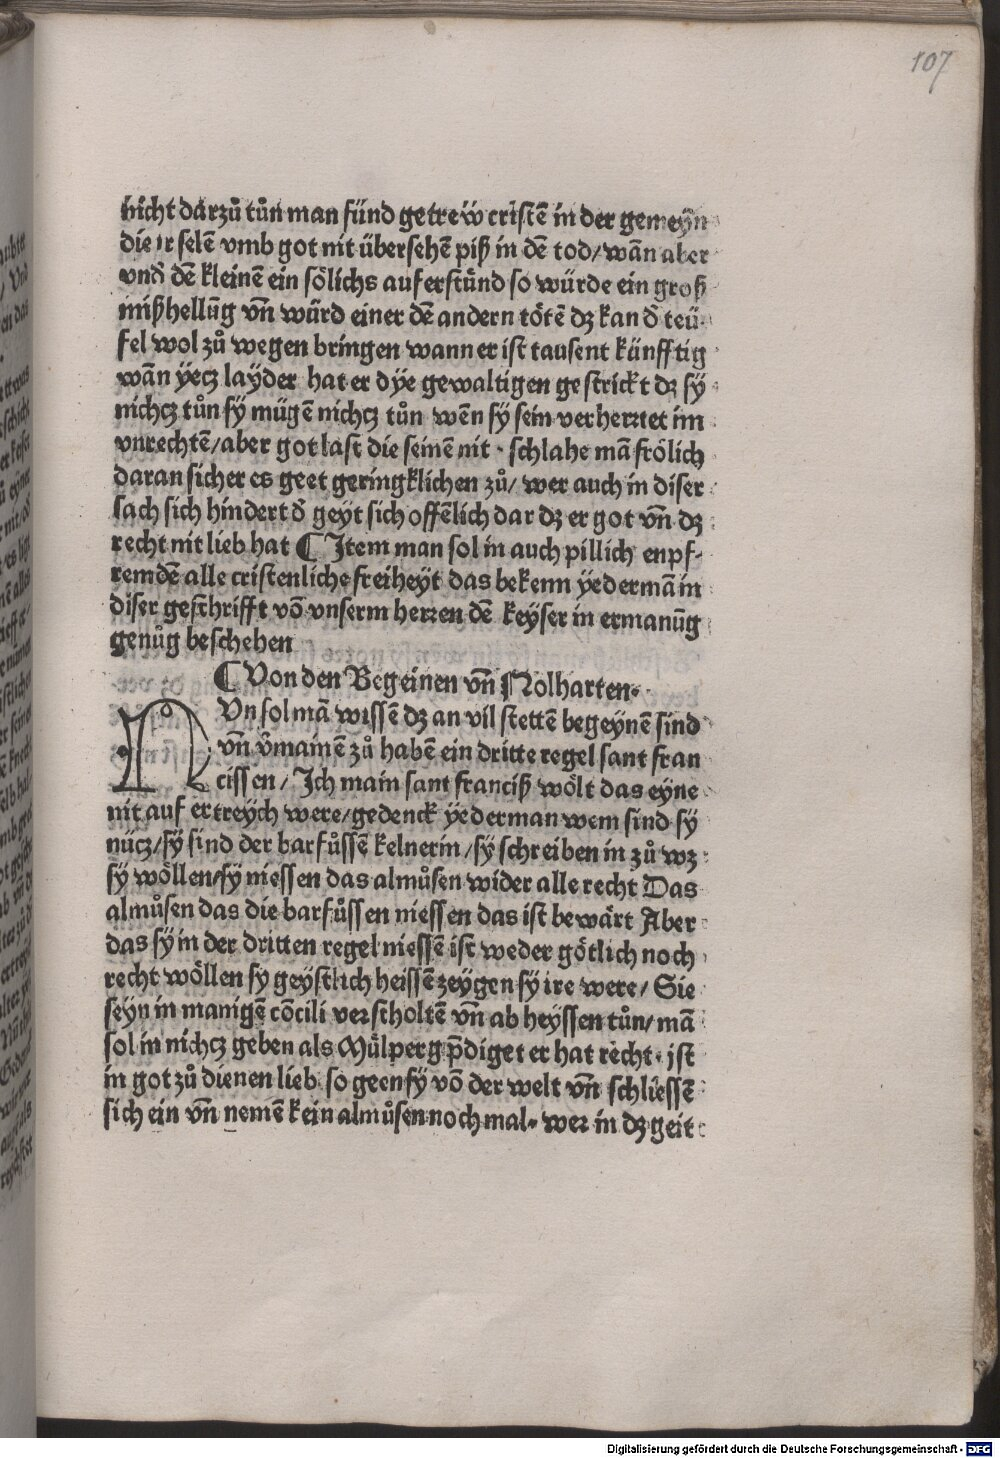 107
nicht darzů tůn man fünd getrew̎ cristē in der gemeyn
die ir selē vmb got nit übersehē piß in dē tod/wān aber
vnď dē kleinē ein sölichs auferstünd so würde ein groß
mißhellūg vn̄ würd einer dē andern tötē dz kan ď teü
fel wol zů wegen bringen wann er ist tausent künfftig
wān yecz layder hat er dye gewaltigen gestrickt dz sÿ
nichcz tůn sÿ mügē nichcz tůn wēn sÿ sein verhertet im
vnrechtē/aber got last die seinē nit · schlahe mā frölich
daran sicher es geet geringklichen zů/ wer auch in diser
sach sich hindert ď geyt sich offēlich dar dz er got vn̄ dz
recht nit lieb hat ¶ Item man sol in auch pillich enpf-
remdē alle cristenliche freiheyt das bekenn yedermā in
diser geschrifft vō vnserm herren dē keyser in ermanūg
genůg beschehen
¶ Von den Begeinen vn̄ Nolharten·
NVn sol mā wissē dz an vil stettē begeynē sind
vn̄ v̄mainē zů habē ein dritte regel sant fran
cissen/ Ich main sant franciß wölt das eyne
nit auf ertreych were/gedenck yederman wem sind sÿ
nücz/sÿ sind der barfůssē kelnerin/sÿ schreiben in zů wz
sÿ wöllen/sÿ niessen das almůsen wider alle recht Das
almůsen das die barfůssen niessen das ist bewärt Aber
das sÿ in der dritten regel niessē ist weder götlich noch
recht wöllen sy geystlich heissē zeygen sÿ ire were/ Sie
seyn in manigē cōcili verscholtē vn̄ ab heyssen tůn/mā
sol in nichcz geben als Mülperg p̄diget er hat recht· ist
in got zů dienen lieb so geen sÿ vō der welt vn̄ schliessē
sich ein vn̄ nemē kein almůsen noch mal· wer in dz geit
Digitalisierung gefördert durch die Deutsche Forschungsgemeinschaft - DFG